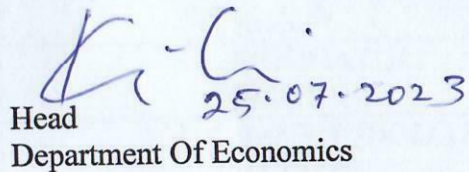 25.07.2023
Head
Department Of Economics